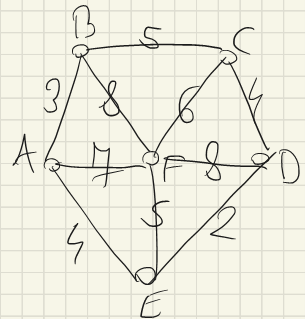 B
5
C
3
8
6
4
A
7
F
8
D
4
5
2
E